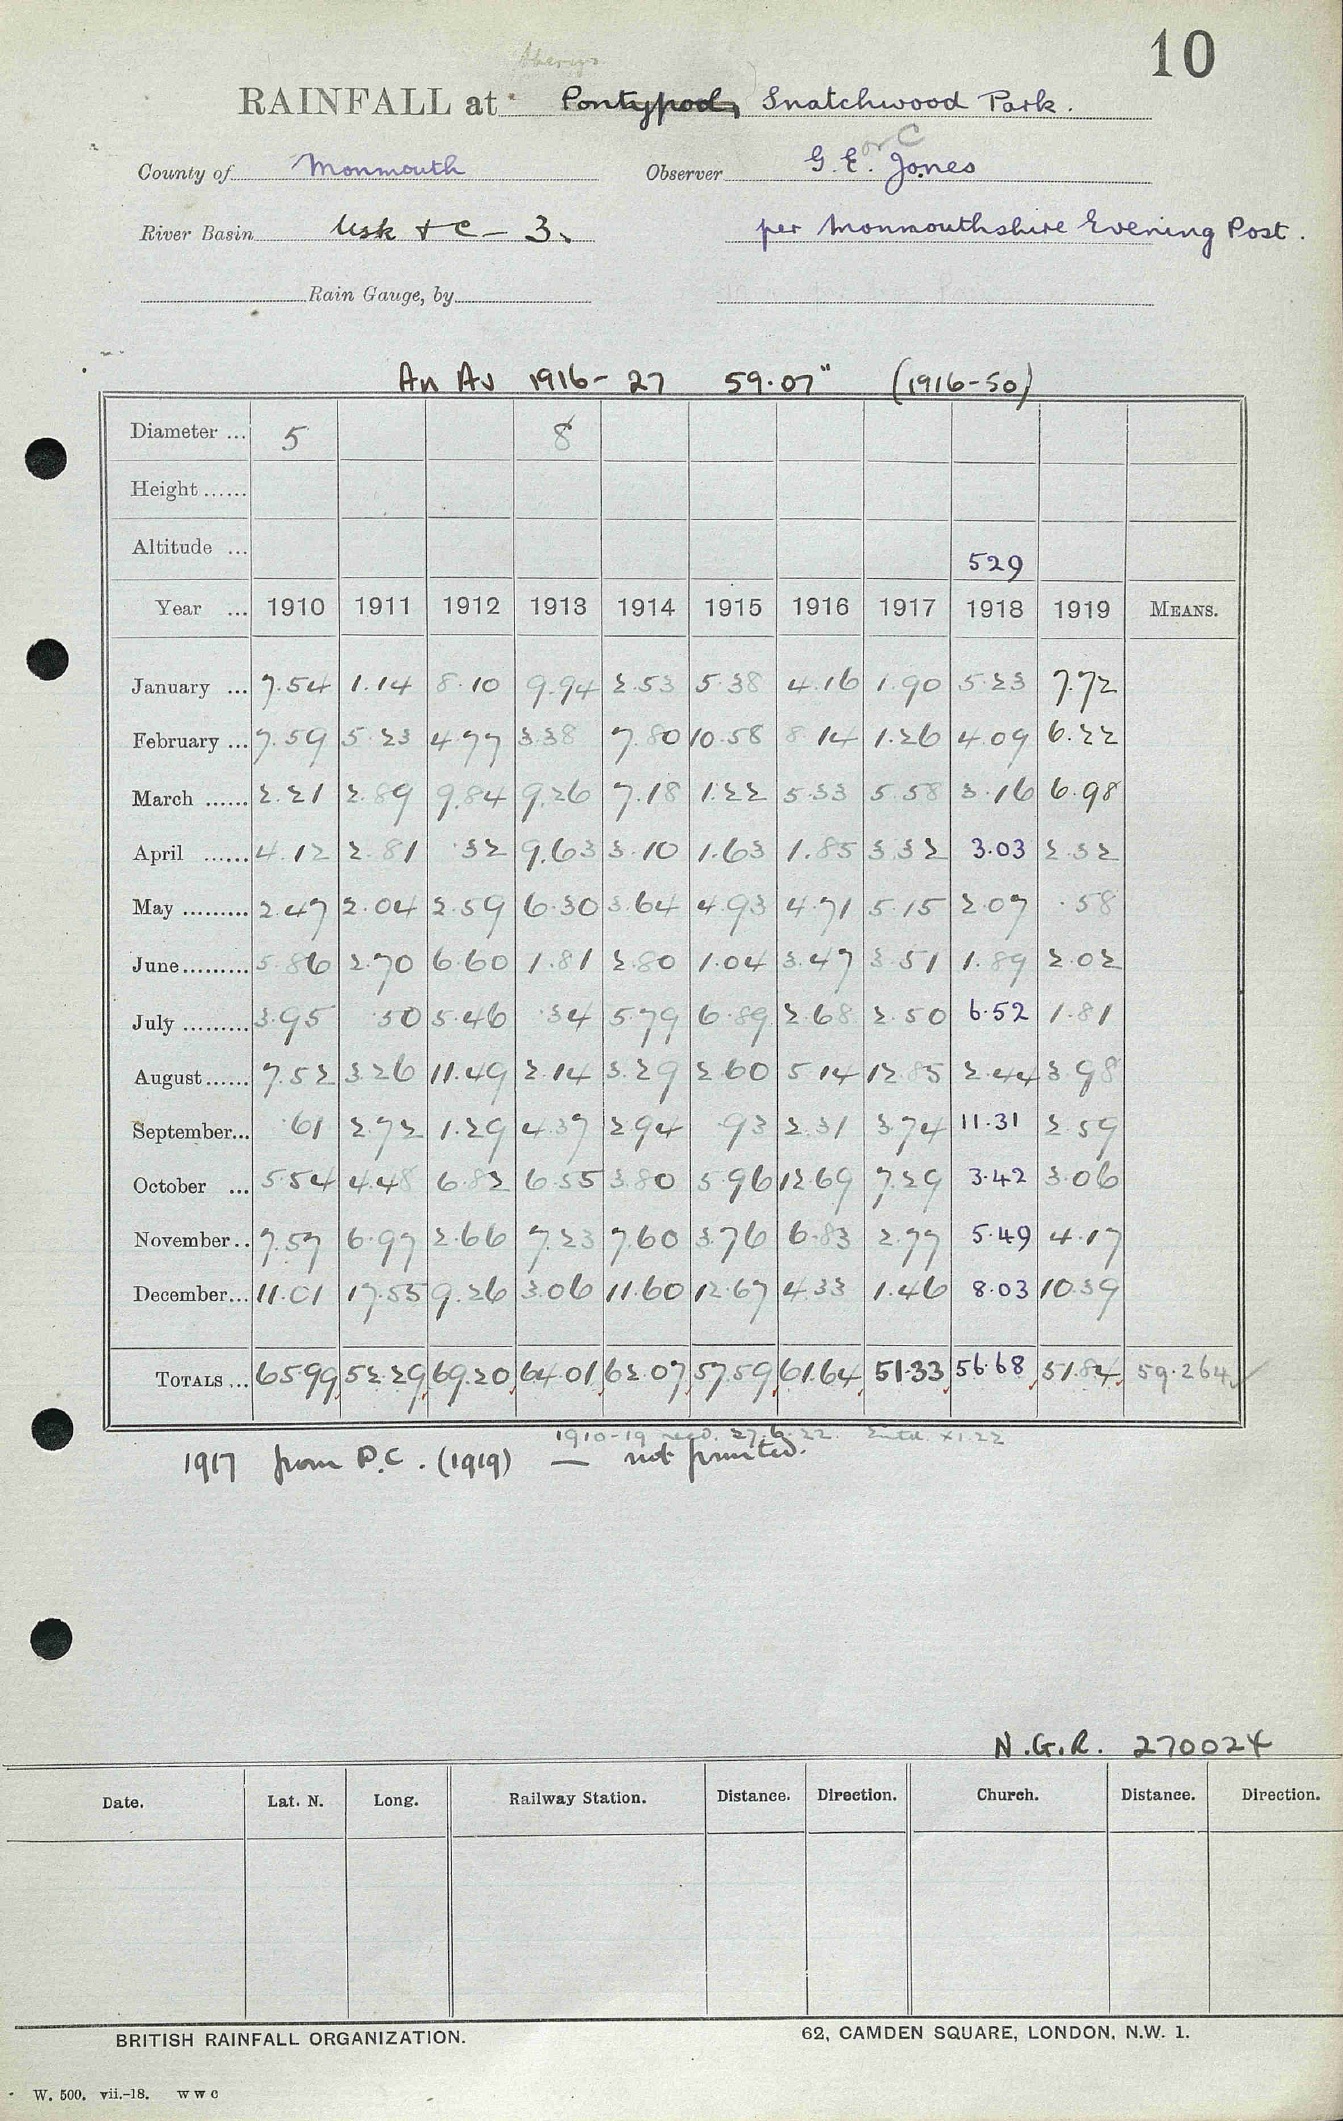 10
RAINFALL at Pontypool, Snatchwood Park.
or C
County of Monmouth Observer G. E. Jones
River Basin Usk & C - 3. per Monmouthshire Evening Post.
Rain Gauge, by
An Av 1916-27 59.07" (1916-50)
Diameter ... 5 8
Height ......
Altitude ... 529
Year ... 1910 1911 1912 1913 1914 1915 1916 1917 1918 1919 MEANS.
January ... 7.54 1.14 8.10 9.94 2.53 5.38 4.16 1.90 5.23 7.72
February ... 7.59 5.23 4.77 3.38 7.80 10.58 8.14 1.26 4.09 6.22
March ...... 2.21 2.89 9.84 9.26 7.18 1.22 5.33 5.58 3.16 6.98
April ...... 4.12 2.81 .32 9.63 3.10 1.63 1.85 3.32 3.03 2.32
May ......... 2.47 2.04 2.59 6.30 3.64 4.93 4.71 5.15 2.07 .58
June ......... 5.86 2.70 6.60 1.81 2.80 1.04 3.47 3.51 1.89 2.02
July ......... 3.95 .50 5.46 .34 5.79 6.89 2.68 2.50 6.52 1.81
August ...... 7.52 3.26 11.49 2.14 3.29 2.60 5.14 12.85 2.44 3.98
September... .61 2.72 1.29 4.37 2.94 .93 2.31 3.74 11.31 2.59
October ... 5.54 4.48 6.82 6.55 3.80 5.96 12.69 7.29 3.42 3.06
November .. 7.57 6.97 2.66 7.23 7.60 3.76 6.83 2.77 5.49 4.17
December... 11.01 17.55 9.26 3.06 11.60 12.67 4.33 1.46 8.03 10.39
TOTALS ... 65.99 52.29 69.20 64.01 62.07 57.59 61.64 51.33 56.68 51.84 59.264
1910-19 recd. 27.6.22. Entd. XI.22
1917 from P.C. (1919) — not printed.
N.G.R. 270024
Date. Lat. N. Long. Railway Station. Distance. Direction. Church. Distance. Direction.
BRITISH RAINFALL ORGANIZATION. 62, CAMDEN SQUARE, LONDON, N.W. 1.
W. 500. vii.-18. W W C